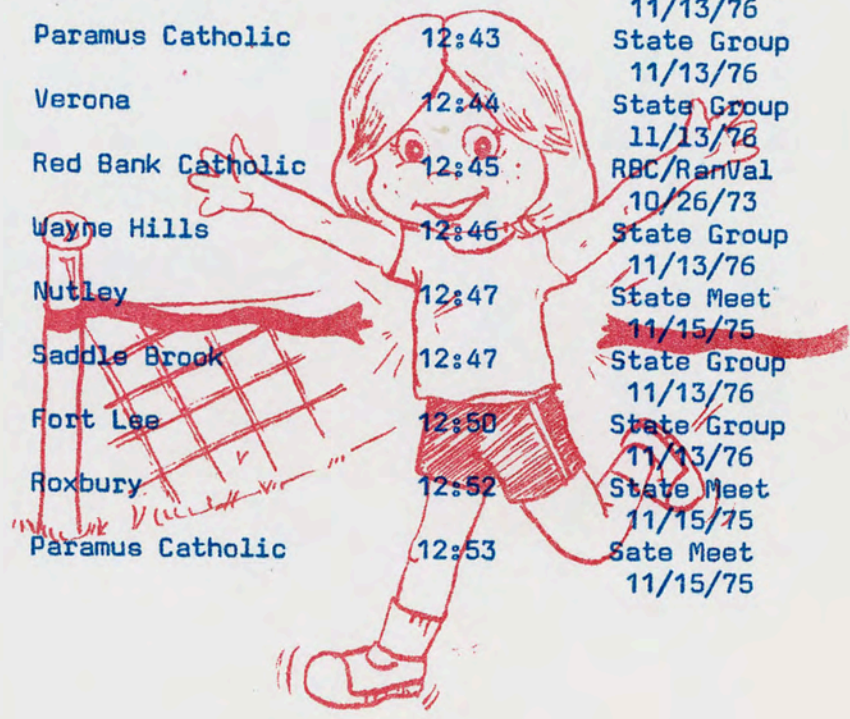 11/13/76
Paramus Catholic 12:43 State Group
11/13/76
Verona 12:44 State Group
11/13/76
Red Bank Catholic 12:45 RBC/RanVal
10/26/73
Wayne Hills 12:46 State Group
11/13/76
Nutley 12:47 State Meet
11/15/75
Saddle Brook 12:47 State Group
11/13/76
Fort Lee 12:50 State Group
11/13/76
Roxbury 12:52 State Meet
11/15/75
Paramus Catholic 12:53 Sate Meet
11/15/75